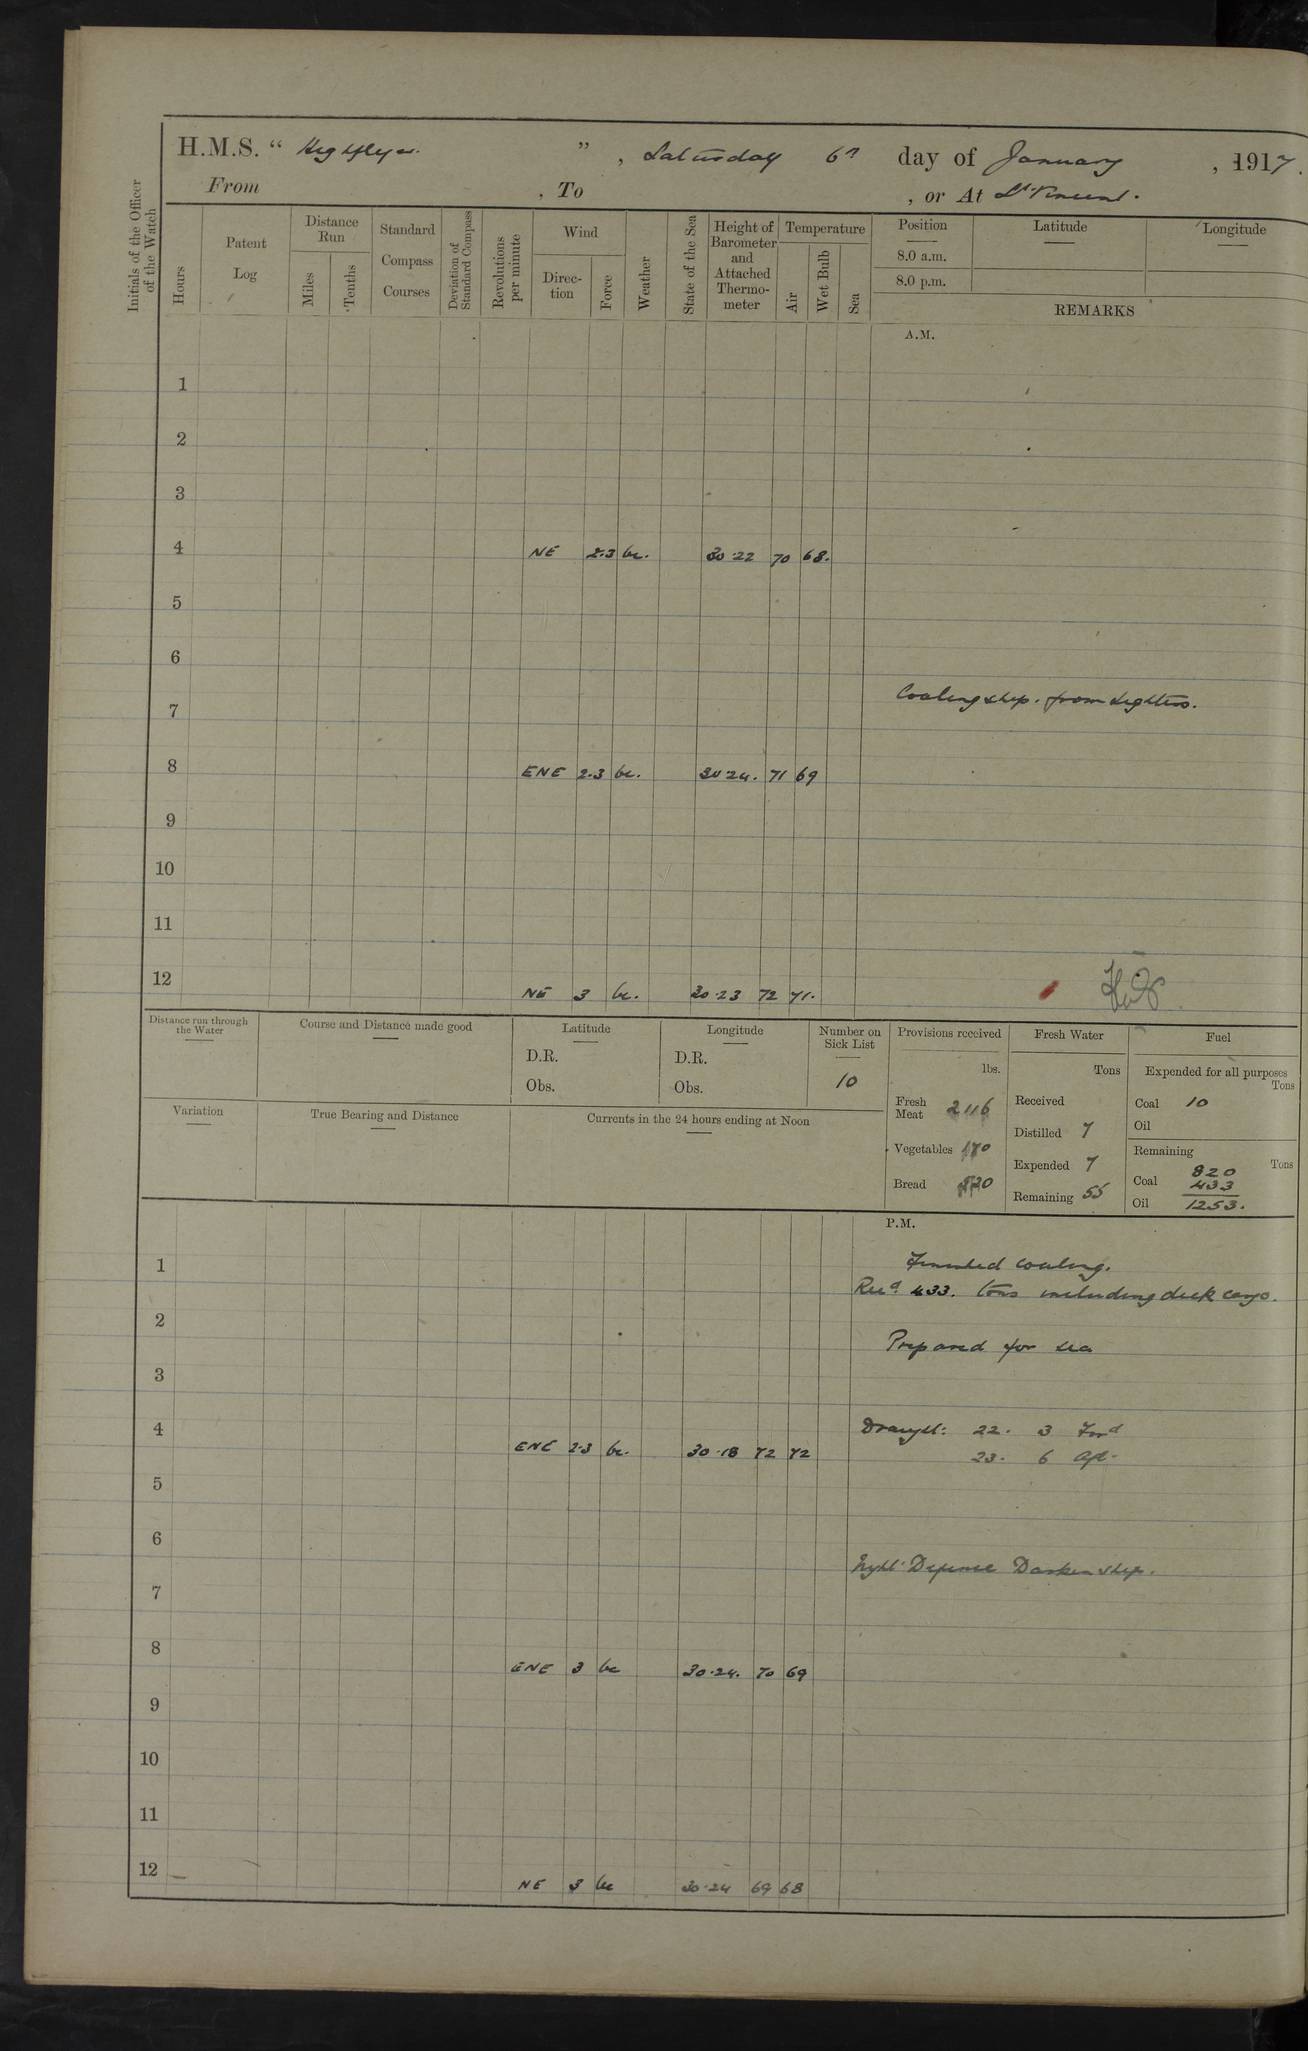 H.M.S. “ Highflyer ” , Saturday 6th day of January , 1917.
From , To , or At St Vincent.
Initials of the Officer of the Watch
Hours
Patent Log
Distance Run
Miles
Tenths
Standard Compass Courses
Deviation of Standard Compass
Revolutions per minute
Wind
Direction
Force
Weather
State of the Sea
Height of Barometer and Attached Thermometer
Temperature
Air
Wet Bulb
Sea
Position
8.0 a.m.
8.0 p.m.
Latitude
Longitude
REMARKS
A.M.
1
2
3
4 NE 2.3 bc. 30.22 70 68.
5
6
Coaling ship. from lighters.
7
8 ENE 2.3 bc. 30.24. 71 69
9
10
11
12 NE 3 bc. 30.23 72 71.
Distance run through the Water
Course and Distance made good
Latitude
D.R.
Obs.
Longitude
D.R.
Obs.
Number on Sick List
10
Provisions received
lbs.
Fresh Meat 2116
Vegetables
Bread
Fresh Water
Tons
Received
Distilled 7
Expended 7
Remaining 55
Fuel
Expended for all purposes
Tons
Coal 10
Oil
Remaining
Tons
820
Coal 433
Oil 1253.
Variation
True Bearing and Distance
Currents in the 24 hours ending at Noon
P.M.
1 Finished coaling.
Recd. 433. tons including deck cargo.
2
Prepared for sea
3
4 ENE 2.3 bc. 30.18 72 72 Draught: 22. 3 Ford
23. 6 Aft.
5
6
Night Defence Darken ship.
7
8 ENE 3 bc 30.24. 70 69
9
10
11
12 NE 3 bc 30.24 69 68